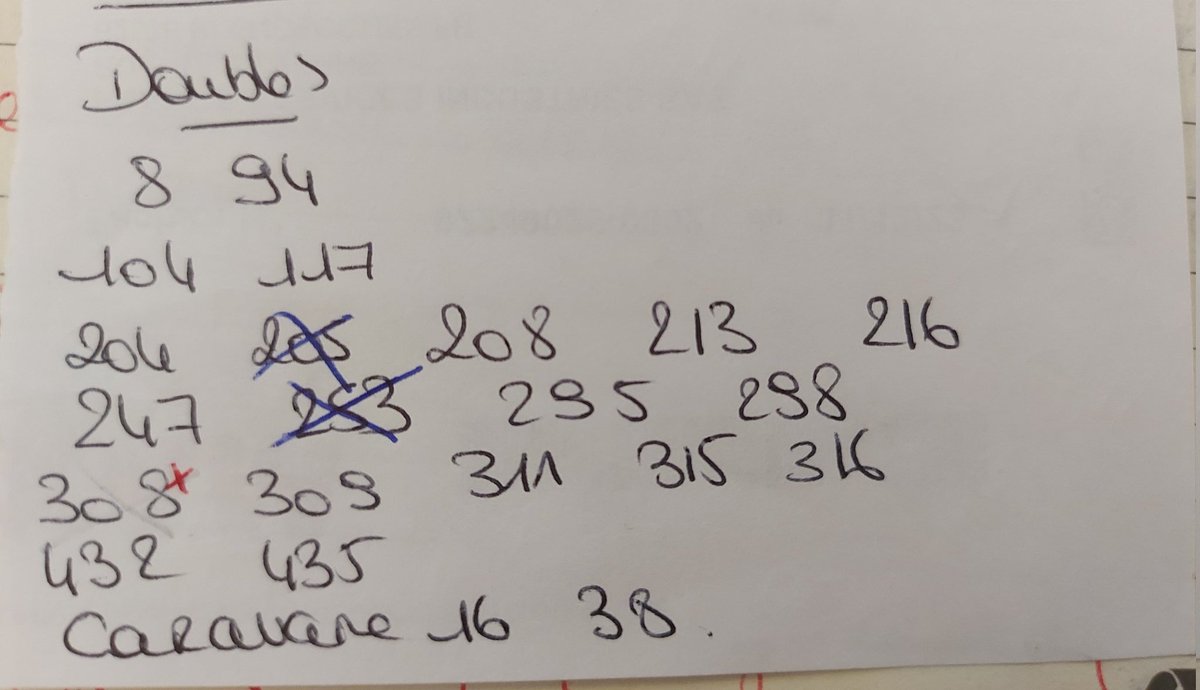 Doubles
8 94
104 117
204 205 208 213 216
247 253 295 298
308x 309 311 315 316
432 435
Caravane 16 38.